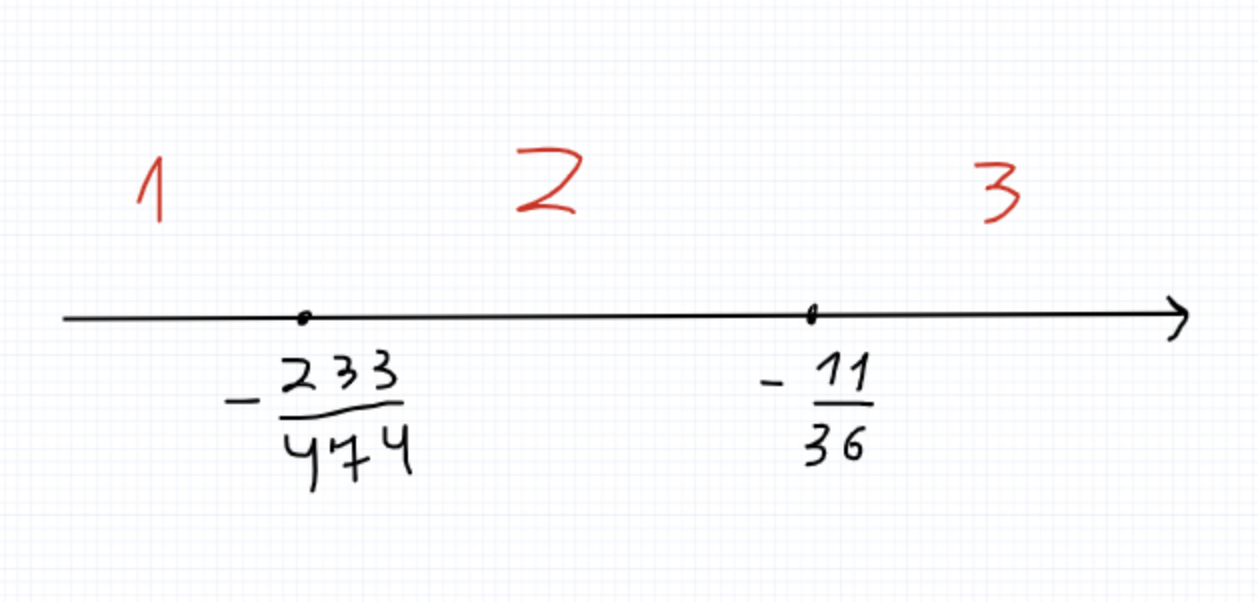 1 2 3
- 233/474 - 11/36